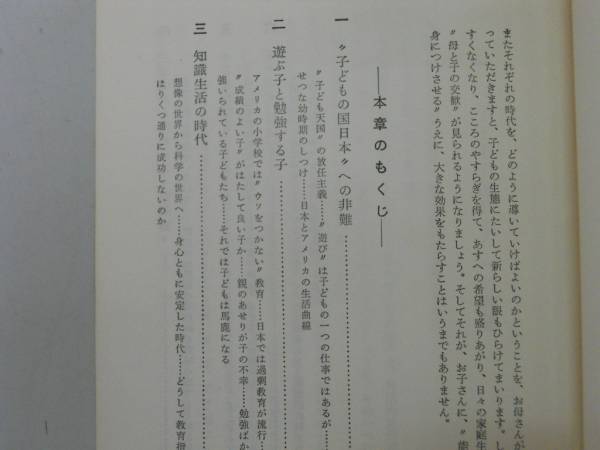 またそれぞれの時代を、どのように導いていけばよいのかということを、お母さんが
っていただきますと、子どもの生態にたいして新らしい眼もひらけてまいります。し
すくなくなり、こころのやすらぎを得て、あすへの希望も盛りあがり、日々の家庭生
〝母と子の交歓〟が見られるようになりましょう。そしてそれが、お子さんに、〝能
身につけさせる〟うえに、大きな効果をもたらすことはいうまでもありません。
――本章のもくじ――
一 〝子どもの国日本〟への非難……………
〝子ども天国〟の放任主義……〝遊び〟は子どもの一つの仕事ではあるが……
せつな幼時期のしつけ……日本とアメリカの生活曲線
二 遊ぶ子と勉強する子……………
アメリカの小学校では〝ウソをつかない〟教育……日本では過剰教育が流行……
〝成績のよい子〟がはたして良い子か……親のあせりが子の不幸……勉強ばか
強いられている子どもたち……それでは子どもは馬鹿になる
三 知識生活の時代……………
想像の世界から科学の世界へ……身心ともに安定した時代……どうして教育措
はりくつ通りに成功しないのか